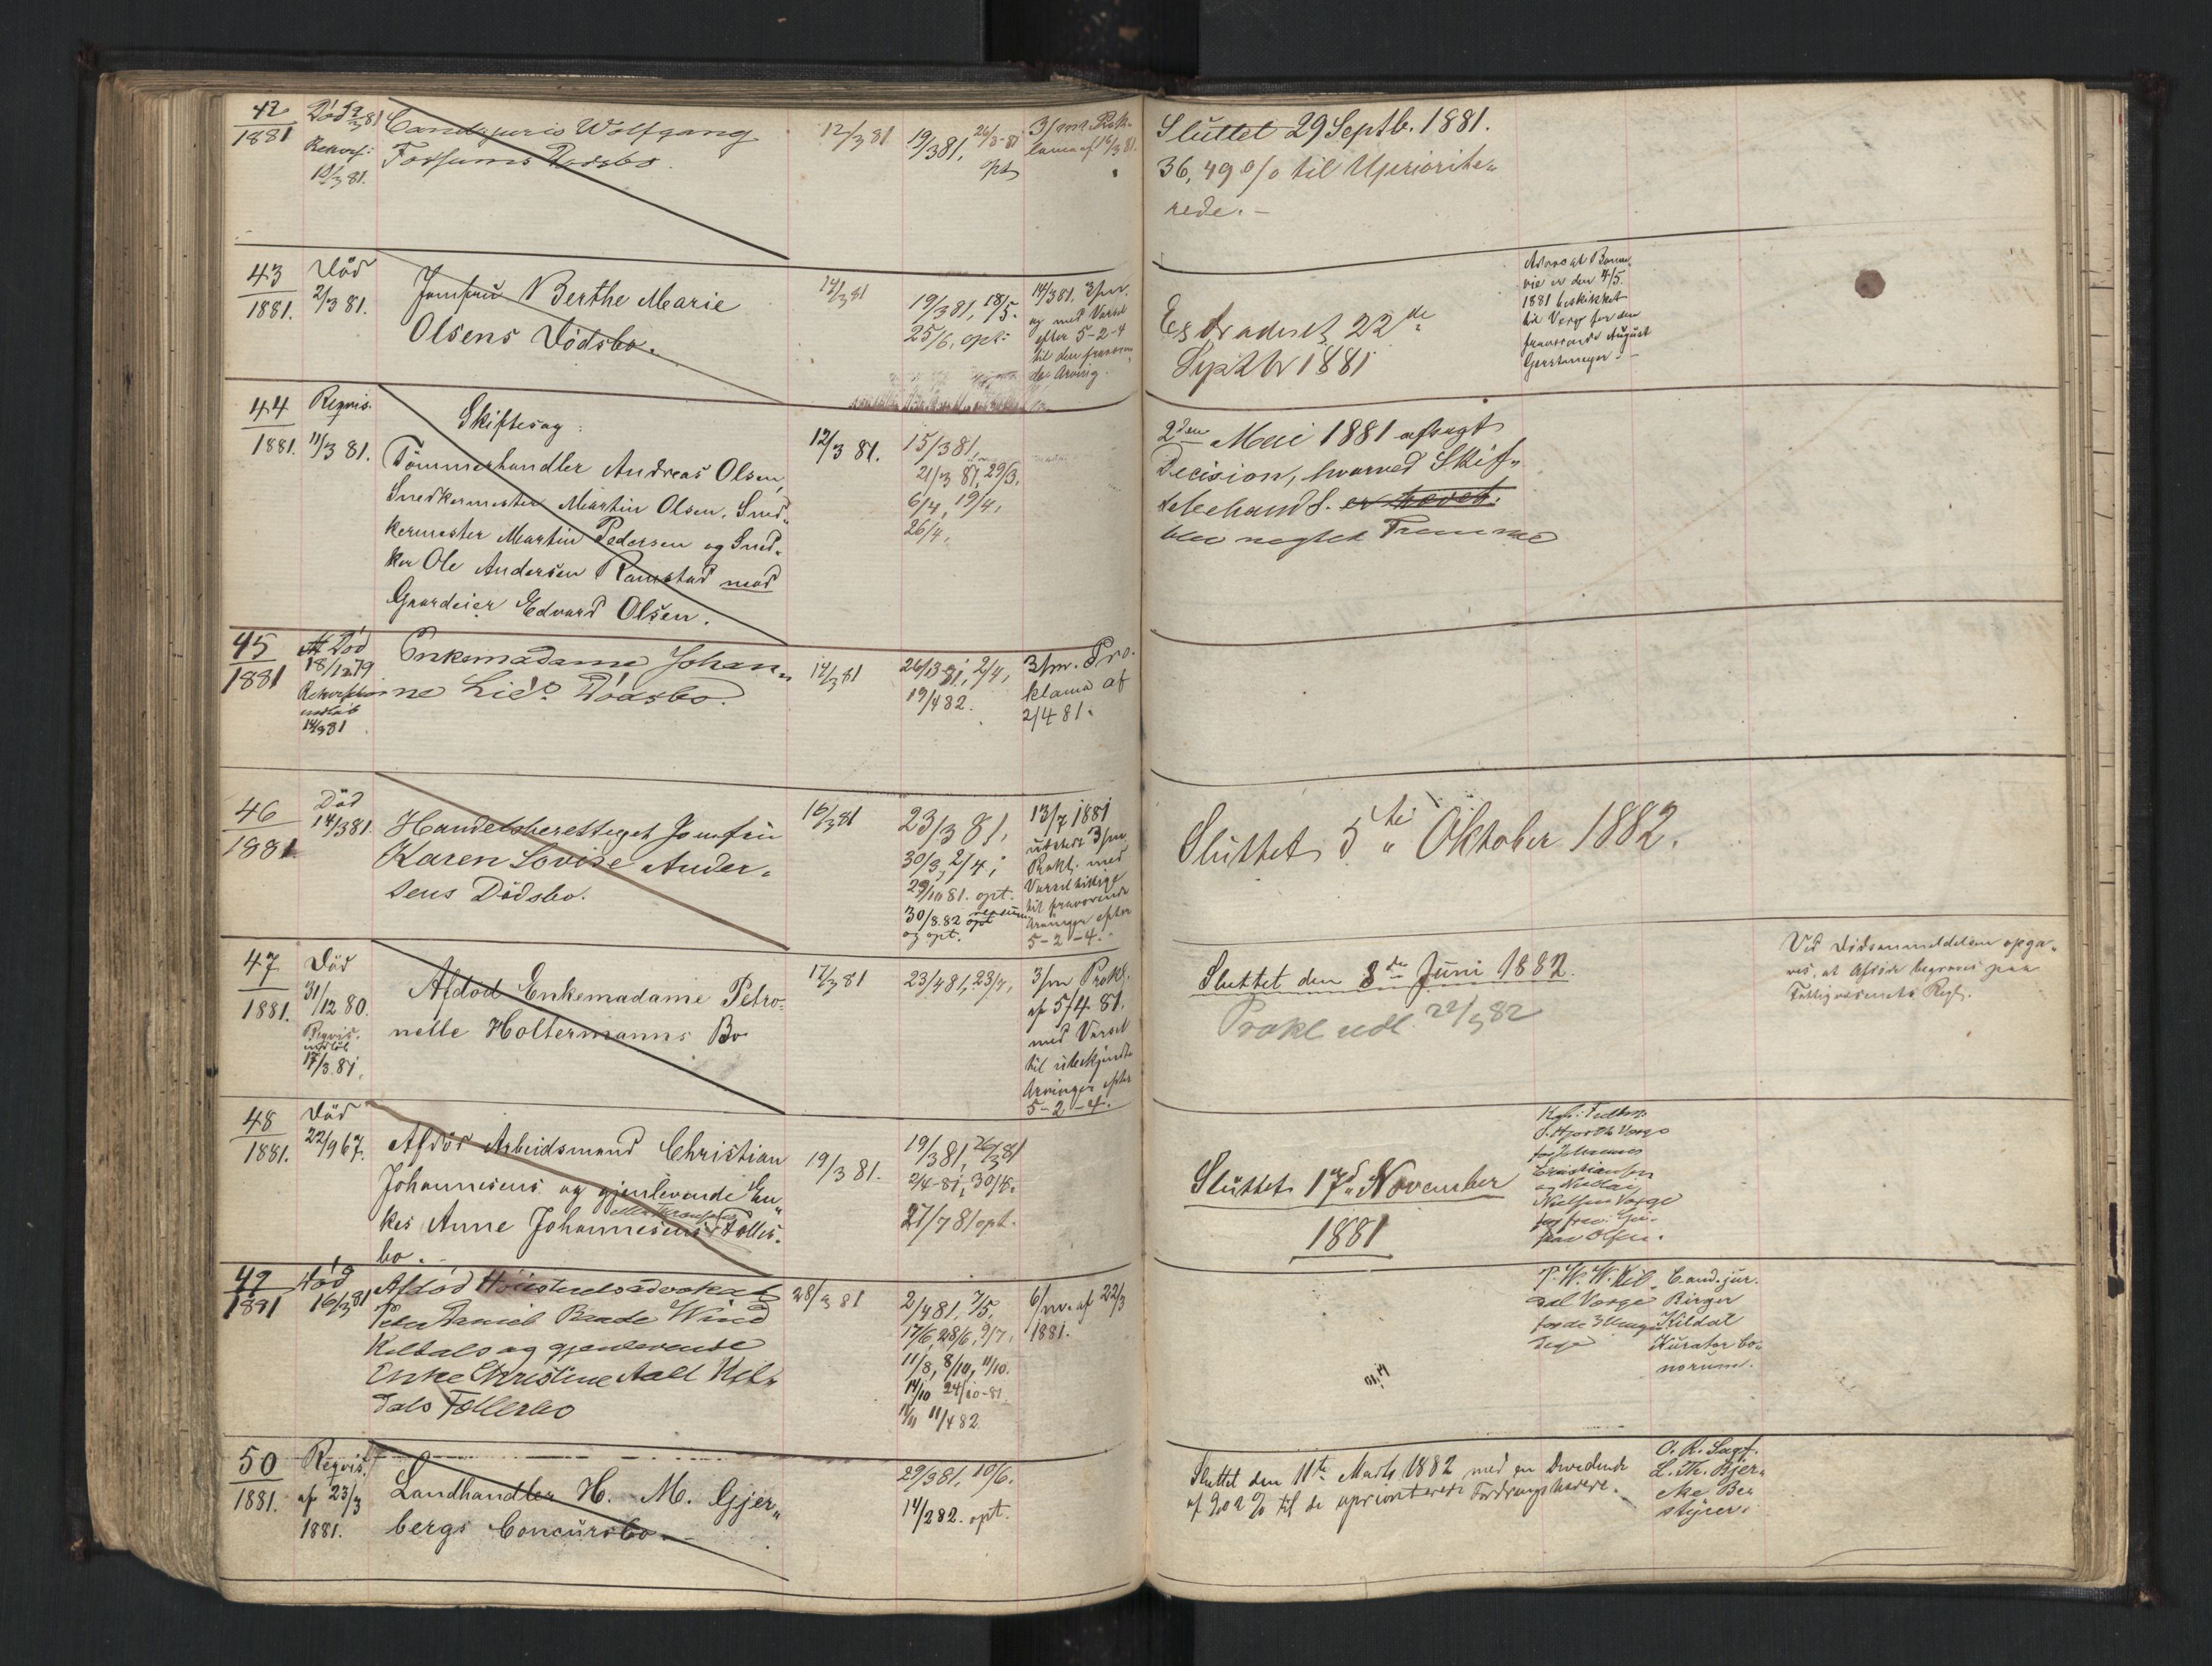 42
1881
Død 2/3 81
Rekvis:
12/3 81.
Cand. juris Wolfgang
Forsums Dødsbo.
12/3 81
19/3 81, 26/3-81
opt
3/m Prok-
lama af 16/3 81.
Sluttet 29 Septb. 1881.
36,49 % til Uprioritе„
rede. –
43
1881.
Død
2/3 81.
Jomfru Berthe Marie
Olsens Dødsbo.
14/3 81
19/3 81, 18/5.
25/6, opt:
14/3 81, 3/m.
og med Varsel
efter 5-2-4
til den fraværen„
de Arving.
Extraderet 22de
Septbr 1881
er den 4/5.
1881 beskikket
til Verge for den
fraværende August
44
1881.
Reqvis.
11/3 81.
Skiftesag:
Tømmerhandler Andreas Olsen,
Snedkermester Martin Olsen, Sned„
kermester Martin Pedersen og Sned„
ker Ole Andersen Ramstad mod
Gaardeier Edvard Olsen.
12/3 81.
15/3 81,
21/3 81, 29/3,
6/4, 19/4,
26/4,
2den Mai 1881 afsagt
Decision, hvorved Skif„
tebehandl. er hævet.
blev negtet Fremme
45
1881
Død
18/12 79
14/3 81
Enkemadame Johan„
ne Lie's Dødsbo.
14/3 81
26/3 81, 2/4,
19/4 82.
3/m. Pro-
klama af
2/4 81.
46
1881
Død
14/3 81.
Handelsberettiget Jomfru
Karen Lovise Ander„
sens Dødsbo.
16/3 81
23/3 81,
30/3, 2/4,
29/10 81. opt.
30/8. 82
og opt.
13/7 1881
udstedt 3/m
Prokl. med
Varsel
til fraværende
Arvinger efter
5-2-4.
Sluttet 5te Oktober 1882.
47
1881.
Død
31/12 80.
Reqvis.
indløb
17/3 81.
Afdød Enkemadame Petro-
nelle Holtermanns Bo
17/3 81
23/4 81, 23/7,
3/m Prokl.
af 5/4 81.
med Varsel
til ubekjendte
Arvinger efter
5-2-4.
Sluttet den 8de Juni 1882.
Prokl udl. 22/3 82
Ved Dødsanmeldelsen opga„
ves, at Afdøde begraves paa
Fattigvæsenets Regl.
48
1881.
Død
22/9 67.
Afdød Arbeidsmand Christian
Johannesens og gjenlevende En„
kes Anne Johannesens Fælles-
bo.
19/3 81.
19/3 81, 26/3 81
2/4-81, 30/4.
27/7 81 opt.
Sluttet 17de November
1881
Verge
for Johannes
Christiansen
Nielsen Verge
Olsen.
49
1881
Død
16/3 81
Afdød Høiesteretsadvokat
Peter Daniel Baade Wind
Kildals og gjenlevende
Enke Christine Aall Kil„
dals Fællesbo
28/3 81
2/4 81, 7/5,
17/6, 28/6, 9/7,
11/8, 8/10, 11/10.
14/10 24/10-81
11/4 82
6/m. af 22/3
1881.
P. W. W. Kil„
dal Verge
for de 3
Cand. jur.
Birger
Kildal
Kurator bo„
norum.
50
1881.
Reqvis.
af 23/3
1881.
Landhandler H. M. Gjer„
bergs Concursbo.
29/3 81, 10/6.
14/2 82. opt.
Sluttet den 11te Marts 1882 med en Dividende
til de uprioriterede Fordringshavere.
L. Th. Bjer„
cke Be„
styrer.